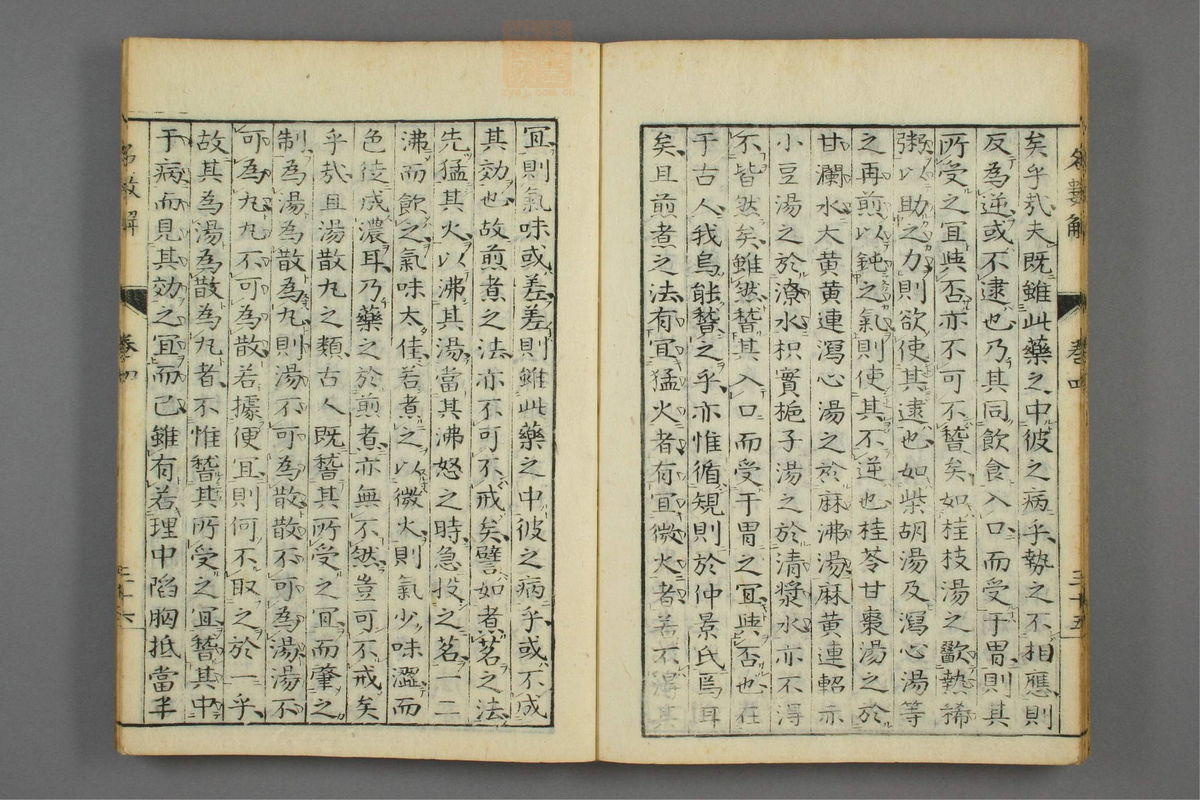 矣乎㢤夫既雖此藥之中彼之病乎勢之不相應則
反為逆或不逮也乃其同飲食入口而受于胃則其
所受之宜與否亦不可不朁矣如桂枝湯之歠熱稀
粥以助之力則欲使其逮也如柴胡湯及瀉心湯等
之再煎以鈍之氣則使其不逆也桂苓甘棗湯之於
甘瀾水大黄黄連瀉心湯之於麻沸湯麻黄連軺赤
小豆湯之於潦水枳實梔子湯之於清漿水亦不得
不皆然矣雖然朁其入口而受于胃之宜與否也在
于古人我烏能朁之乎亦惟循規則於仲景氏焉耳
矣且煎煮之法有宜猛火者有宜微火者若不得其
宜則氣味或差差則雖此藥之中彼之病乎或不成
其効也故煎煮之法亦不可不戒矣譬如煮茗之法
先猛其火以沸其湯當其沸怒之時急投之茗一二
沸而飲之氣味太佳若煮之以微火則氣少味澀而
色徒成濃耳乃藥之於煎煮亦無不然豈可不戒矣
乎㢤且湯散丸之類古人既朁其所受之宜而肇之
制為湯為散為丸則湯不可為散散不可為湯湯不
可為丸丸不可為散若據便宜則何不取之於一乎
故其為湯為散為丸者不惟朁其所受之宜朁其中
于病而見其効之宜而已雖有若理中陷胸抵當半